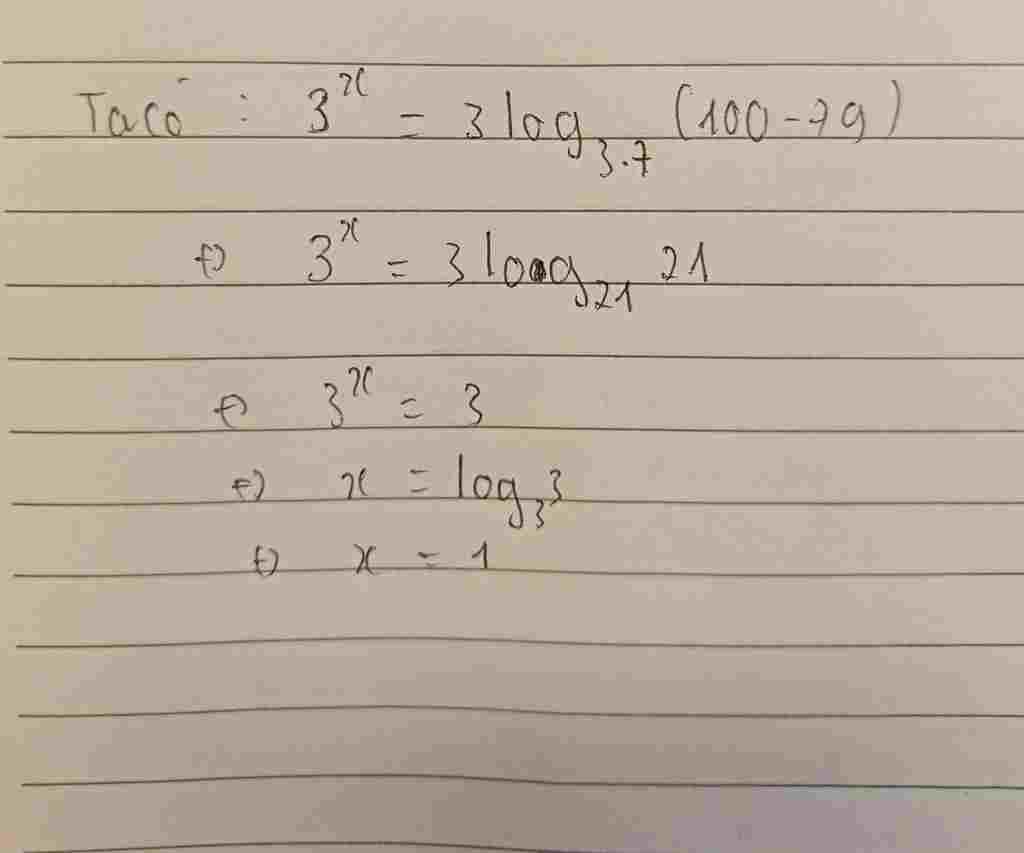 Ta có : 3^x = 3 log_{3.7} (100 - 79)
⇔ 3^x = 3 log_{21} 21
⇔ 3^x = 3
⇔ x = log_3 3
⇔ x = 1